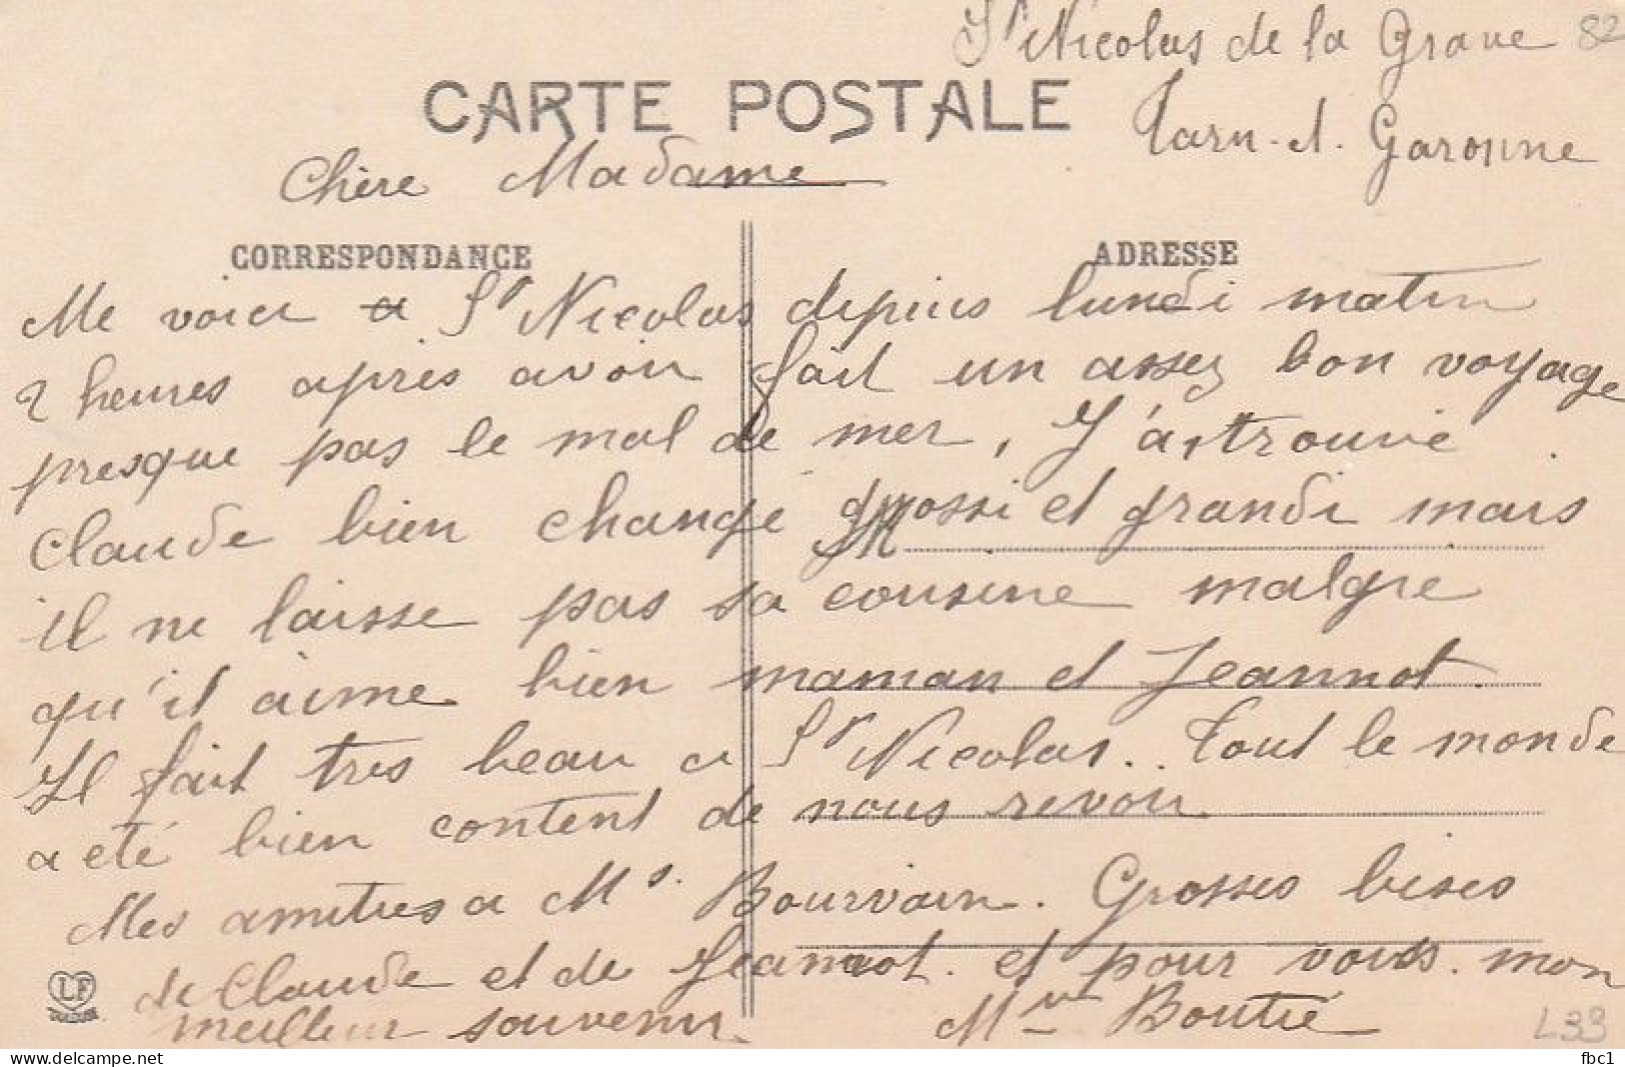 St Nicolas de la Grave 82
CARTE POSTALE
Tarn-et-Garonne
Chère Madame
CORRESPONDANCE
ADRESSE
Me voici a St Nicolas depuis lundi matin
2 heures après avoir fait un assez bon voyage
presque pas le mal de mer, J'ai trouvé
Claude bien changé grossi et grandi mais
il ne laisse pas sa cousine malgre
qu'il aime bien maman et Jeannot.
Il fait tres beau a St Nicolas.. Tout le monde
a eté bien content de nous revoir
Mes amities a Ms. Bourvain. Grosses bises
de Claude et de Jeannot. et pour vous. mon
meilleur souvenir.
Mme Boutié
LF
TOULOUSE
L33
delcampe.com
fbc1